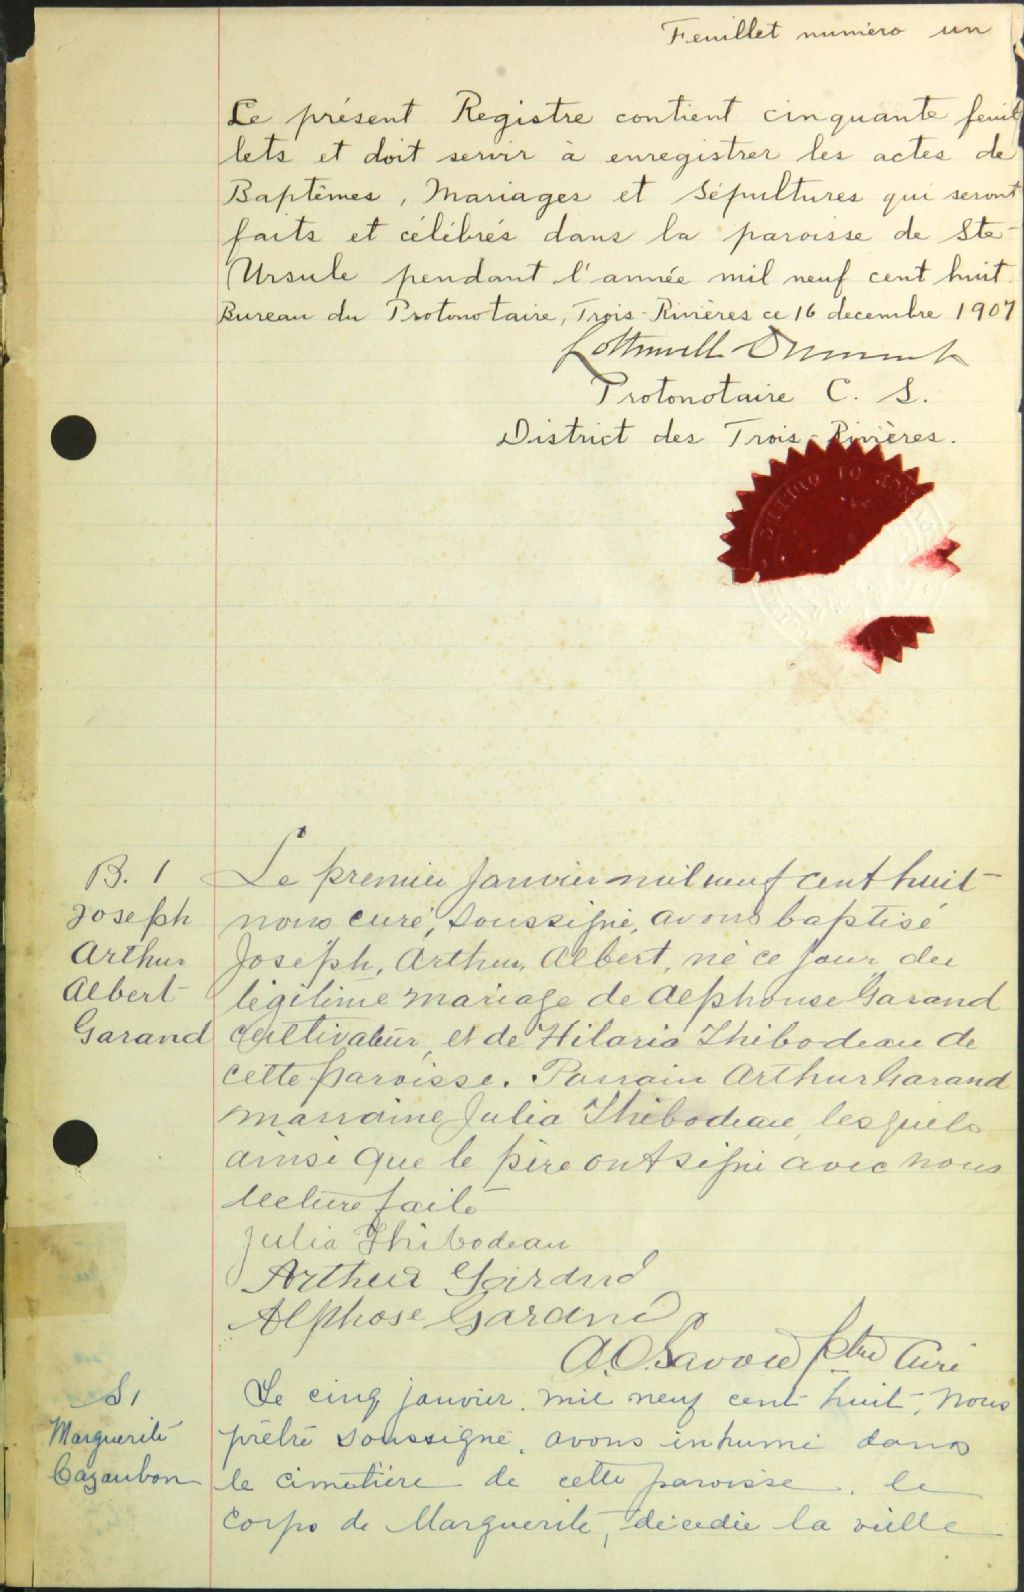 Feuillet numéro un
Le présent Registre contient cinquante feuil
lets et doit servir à enregistrer les actes de
Baptêmes, Mariages et Sépultures qui seront
faits et célébrés dans la paroisse de Ste-
Ursule pendant l'année mil neuf cent huit.
Bureau du Protonotaire, Trois-Rivières ce 16 decembre 1907
Protonotaire C. S.
District des Trois-Rivières.
B. 1
Joseph
Arthur
Albert
Garand
Le premier Janvier mil neuf cent huit
nous curé, soussigné, avons baptisé
Joseph, Arthur, Albert, né ce jour du
légitime mariage de Alphonse Garand
cultivateur, et de Hilaria Thibodeau de
cette paroisse. Parrain Arthur Garand
marraine Julia Thibodeau, lesquels
ainsi que le père ont signé avec nous
lecture faite
Julia Thibodeau
Arthur Garand
Alphose Garand
A.O. Savoie ptre Curé
S1
Marguerite
Cazaubon
Le cinq janvier, mil neuf cent huit, Nous
prêtre soussigné, avons inhumé dans
le cimetière de cette paroisse, le
corps de Marguerite, décédée la veille